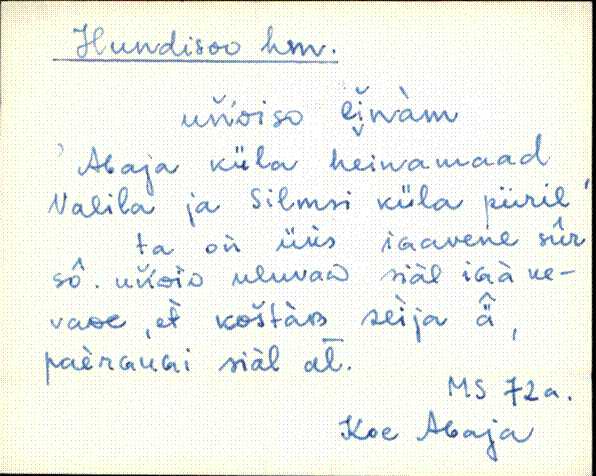 Hundisoo hmn.
uňoiso ēi̯nàm
'Abaja küla heinamaad
Valila ja Silmsi küla piiril'
ta oǹ üùs iɢavene sûr
sô. uňoiD uluvaD siäl iɢà ke-
vaDe, eť koštàB sèija ä̂,
siäl al̄.
MS 72a.
Koe Abaja